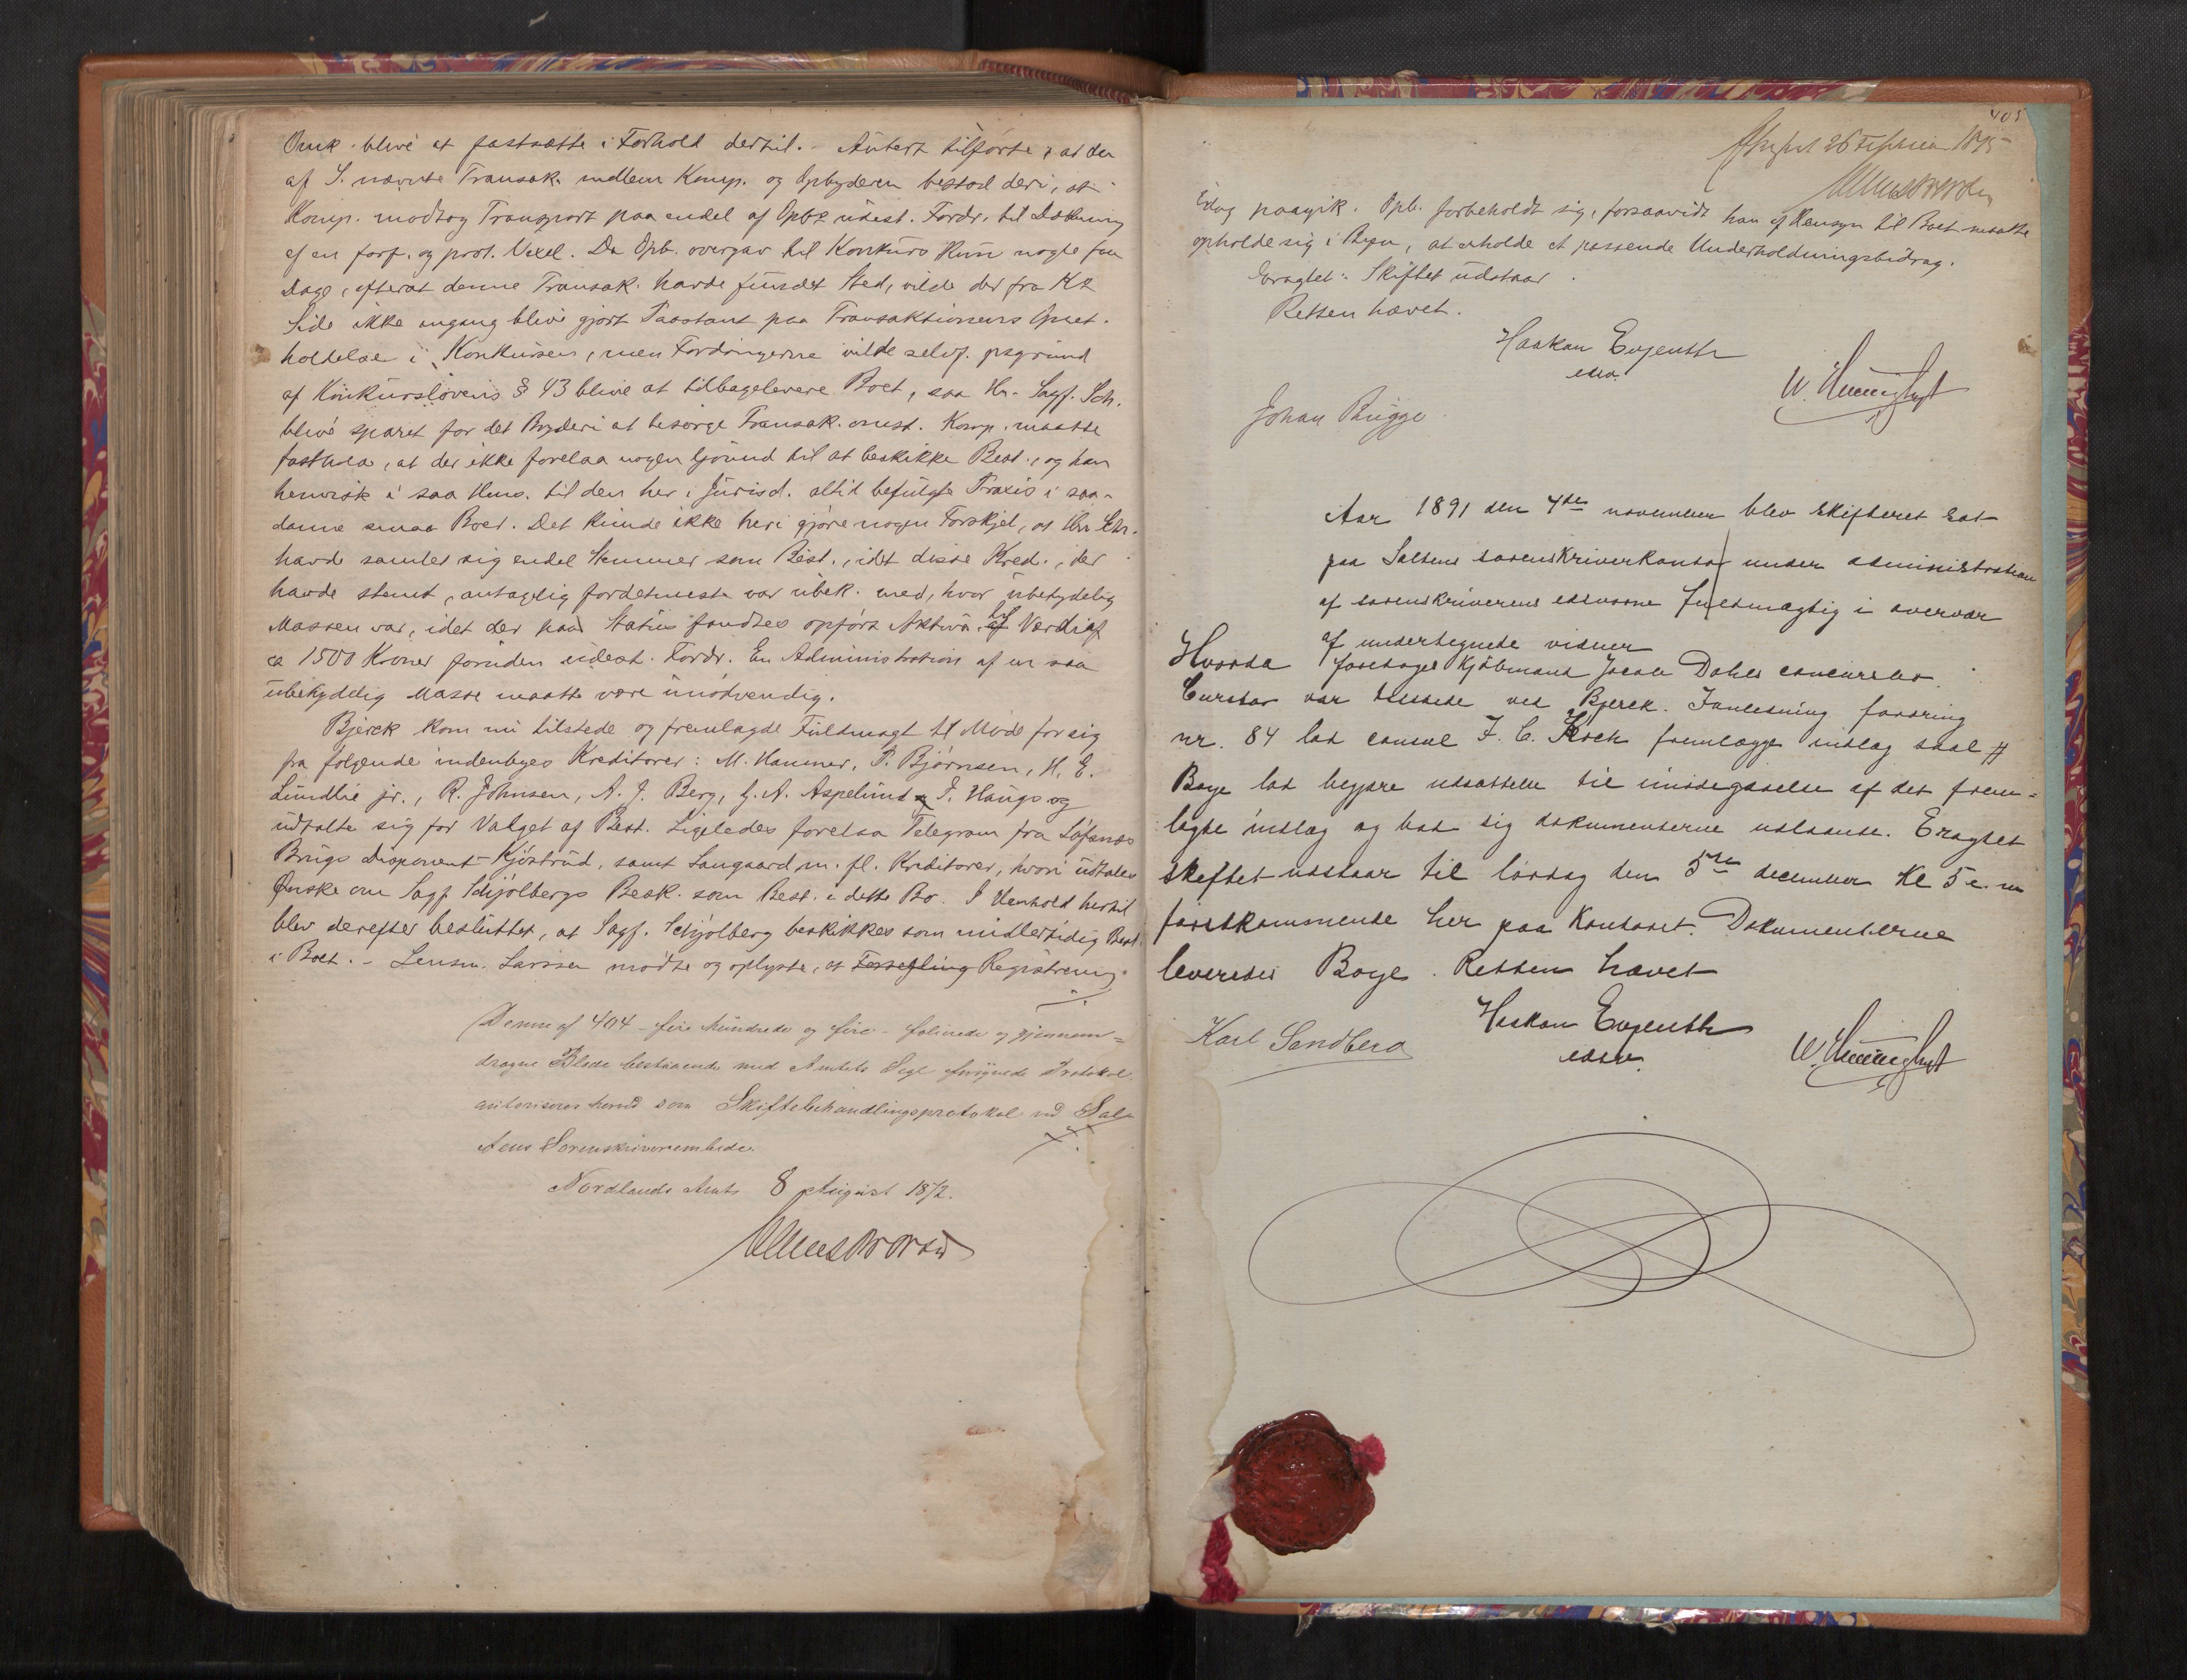 Omk. blive at fastsætte i Forhold dertil. - Autert tilførte, at den
af S. nævnte Transak. mellem Komp. og Opbyderen bestod deri, at
Komp. modtog Transport paa endel af Opbs udest. Fordr. til Dækning
af en forf. og prot. Vexel. Da Opb. overgav til Konkurs kun nogle faa
Dage, efterat denne Transak. havde fundet Sted, vilde der fra Ks
Side ikke engang blive gjort Paastant paa Transaktionens Opret-
holdelse i Konkursen, men Fordringerne vilde selvf. pgrund
af Konkurslovens § 43 blive at tilbagelevere Boet, saa Hr. Sagf. Sch.
blive sparet for det Bryderi at besørge Transak. omst. Komp. maatte
fastholde, at der ikke forelaa nogen Grund til at beskikke Best., og han
henviste i saa Hens. til den her i Jurisd. altid befulgte Praxis i saa-
danne smaa Boer. Det kunde ikke heri gjøre nogen Forskjel, at Hr. Sch.
havde samlet sig endel Stemmer som Best., idet disse Kred., der
havde stemt, antagelig fordetmeste var ubek. med, hvor ubetydelig
Massen var, idet der paa Status fandtes opført Aktiva til Værdi af
ca 1500 Kroner foruden udest. Fordr. En Administration af en saa
ubetydelig Masse maatte være unødvendig.
Bjerck kom nu tilstede og fremlagde Fuldmagt til Møde for sig
fra følgende indenbyes Kreditorer: M. Hammer, P. Bjørnsen, H. E.
Lundlie jr., R. Johnsen, A. J. Berg, G. A. Aspelund & F. Haugs og
udtalte sig for Valget af Best. Ligeledes forelaa Telegram fra Løfsnæs
Brugs Disponent Kjøstrud, samt Saugaard m. fl. Kreditorer, hvori udtales
Ønske om Sagf. Schjølbergs Besk. som Best. i dette Bo. I Henhold hertil
blev derefter besluttet, at Sagf. Schjølberg beskikkes som midlertidig Best.
i Boet. - Lensm. Larssen mødte og oplyste, at Forsegling Registrering
Denne af 404 - fire hundrede og fire - folierede og gjennem=
dragne Blade bestaaende med Amtets Segl forsynede Protokol
autoriseres herved som Skiftebehandlingsprotokol ved Sal-
tens Sorenskriverembede.
Nordlands Amt 8 August 1872.
405
26 Februar 1895
Idag paagik. Opb. forbeholdt sig, forsaavidt han af Hensyn til Boet maatte
opholde sig i Byen, at erholde et passende Underholdningsbidrag.
Eragtet: Skiftet udstaar.
Retten hævet.
Haakon Evjenth
edsv.
Johan Brügge
Aar 1891 den 4de november blev skifteret sat
paa Saltens sorenskriverkontor under administration
af sorenskriverens edsvorne fuldmægtig i overvær
af undertegnede vidner
Hvorda foretoges Kjøbmand Jacob Dahls concursbo.
Curator var tilstede ved Bjerck. I anledning fordring
nr. 84 lod consul J. C. Koch fremlægge indlæg saal #
Boye lod begjære udsættelse til imødegaaelse af det frem=
lagte indlæg og bad sig dokumenterne udlaante. Eragtet
skiftet udstaar til lørdag den 5te december Kl 5 e. m
førstkommende her paa kontoret. Dokumenterne
leveredes Boye. Retten hævet
Haakon Evjenth
edsv.
Karl Sandberg